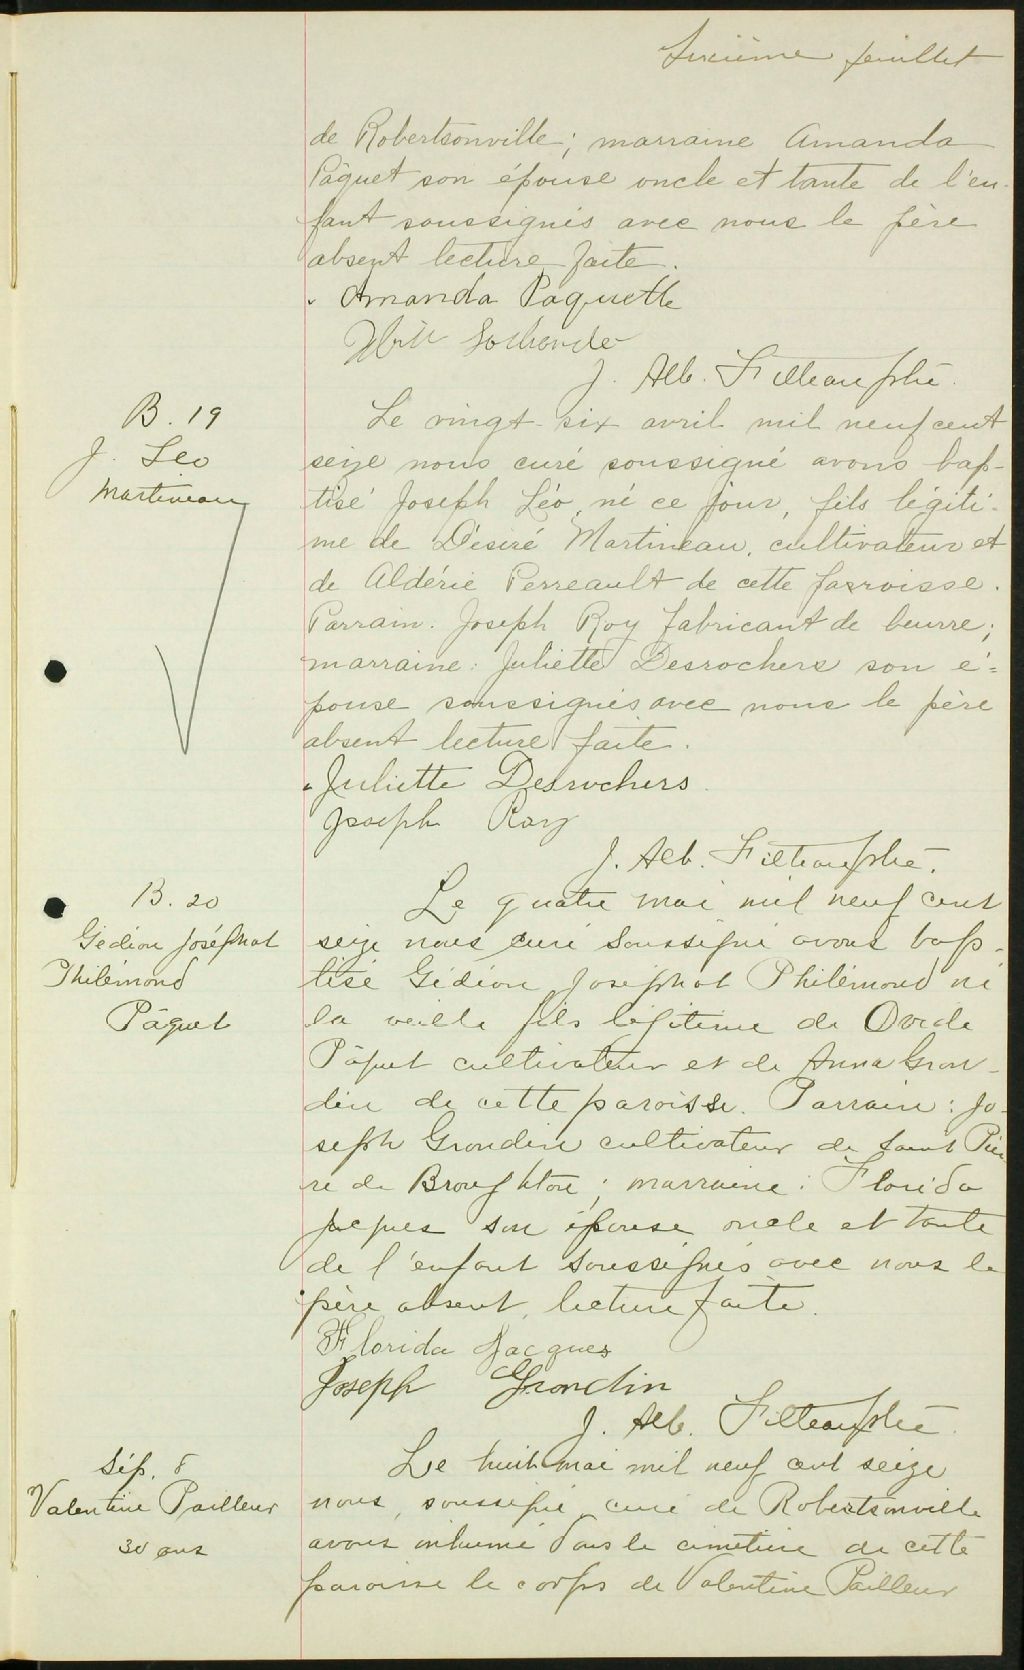 Sixième feuillet
de Robertsonville; marraine Amanda
Pâquet son épouse oncle et tante de l'en-
fant soussignés avec nous le père
absent lecture faite.
Amanda Paquette
J. Alb. Filteau ptre.
B. 19
J. Leo
Martineau
Le vingt-six avril mil neuf cent
seize nous curé soussigné avons bap-
tisé Joseph Léo, né ce jour, fils légiti-
me de Désiré Martineau, cultivateur et
de Aldérie Perreault de cette parroisse.
Parrain: Joseph Roy fabricant de beurre;
marraine: Juliette Desrochers son é=
pouse soussignés avec nous le père
absent lecture faite.
Juliette Desrochers
Joseph Roy
J. Alb. Filteau ptre.
B. 20
Gédion Joséphat
Philémond
Pâquet
Le quatre mai mil neuf cent
seize nous curé soussigné avons bap-
tisé Gédion Josephat Philémond né
la veille fils légitime de Ovide
Pâquet cultivateur et de Anna Gron-
din de cette paroisse. Parrain: Jo-
seph Grondin cultivateur de Saint Pier
re de Broughton; marraine: Florida
Jacques son épouse oncle et tante
de l'enfant soussignés avec nous le
père absent, lecture faite.
Florida Jacques
Joseph Grondin
J. Alb. Filteau ptre.
Sép. 8
Valentine Pailleur
30 ans
Le huit mai mil neuf cent seize
nous, soussigné curé de Robertsonville
avons inhumé dans le cimetière de cette
paroisse le corps de Valentine Pailleur